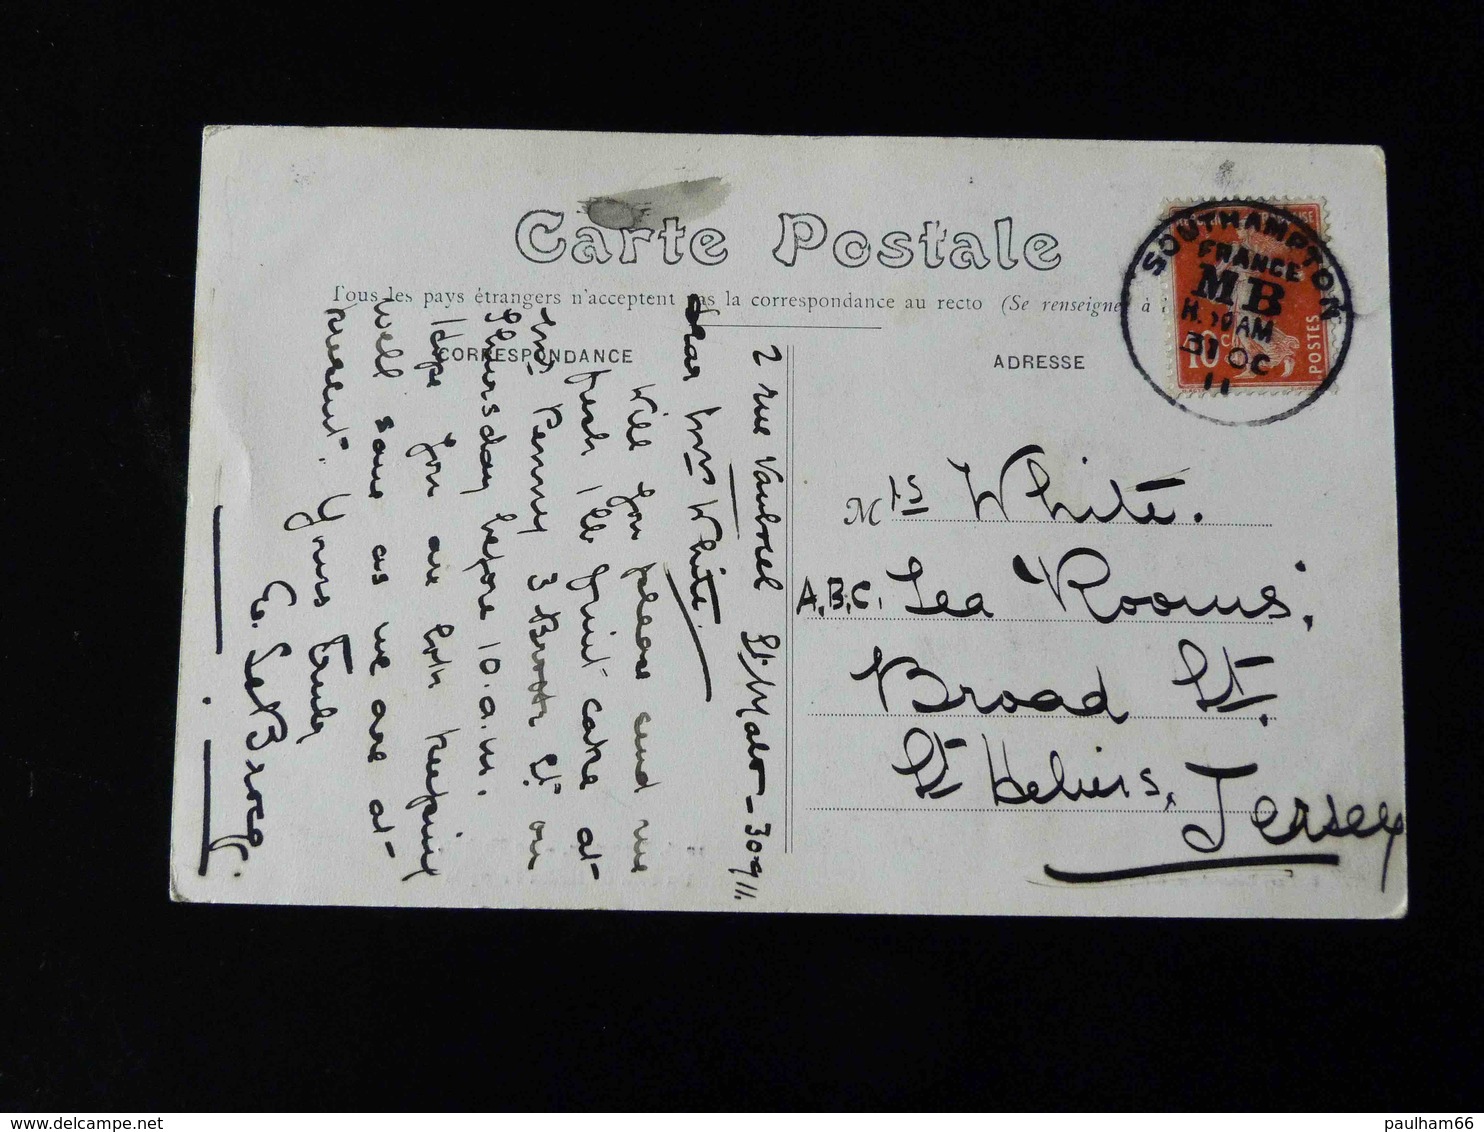 Carte Postale
Tous les pays étrangers n'acceptent pas la correspondance au recto (Se renseigner à
CORRESPONDANCE
ADRESSE
SOUTHAMPTON
FRANCE
MB
10 AM
31 OC
11
10 c
POSTES
Mrs White.
A.B.C. Tea Rooms,
Broad St.
St Heliers,
Jersey
2 rue Vauborel St. Malo - 30 9 11.
Dear Mrs White.
Will you please send me
fresh 1 lb fruit cake at
Mrs Penny 3 Brook St. on
Thursday before 10 a.m.
Hope you are both keeping
well same as we are at
present. Yours truly
E. Le Brocq.
paulham66